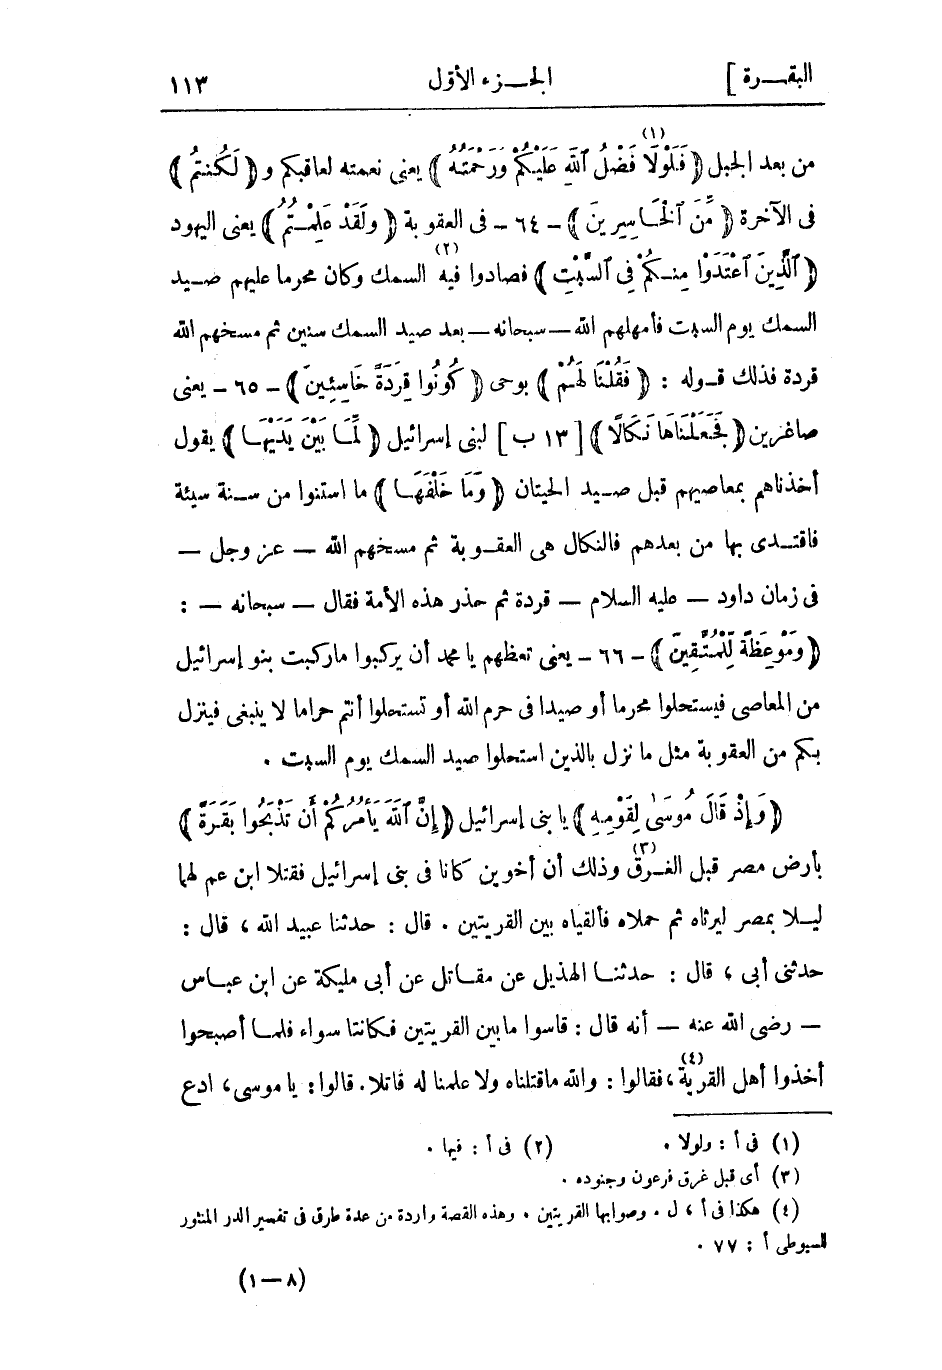 البقرة ] الجزء الأول ١١٣
من بعد الجبل ﴿ فَلَوْلَا (١) فَضْلُ ٱللَّهِ عَلَيْكُمْ وَرَحْمَتُهُ ﴾ يعنى نعمته لعاقبكم و ﴿ لَكُنتُمْ ﴾
فى الآخرة ﴿ مِّنَ ٱلْخَاسِرِينَ ﴾ ـ ٦٤ ـ فى العقوبة ﴿ وَلَقَدْ عَلِمْتُمُ ﴾ يعنى اليهود
﴿ ٱلَّذِينَ ٱعْتَدَوْا مِنكُمْ فِى ٱلسَّبْتِ ﴾ فصادوا فيه (٢) السمك وكان محرما عليهم صيد
السمك يوم السبت فأمهلهم الله — سبحانه — بعد صيد السمك سنين ثم مسخهم الله
قردة فذلك قوله : ﴿ فَقُلْنَا لَهُمْ ﴾ بوحى ﴿ كُونُوا قِرَدَةً خَاسِئِينَ ﴾ ـ ٦٥ ـ يعنى
صاغرين ﴿ فَجَعَلْنَاهَا نَكَالًا ﴾ [ ١٣ ب ] لبنى إسرائيل ﴿ لِّمَا بَيْنَ يَدَيْهَا ﴾ يقول
أخذناهم بمعاصيهم قبل صيد الحيتان ﴿ وَمَا خَلْفَهَا ﴾ ما استنوا من سنة سيئة
فاقتدى بها من بعدهم فالنكال هى العقوبة ثم مسخهم الله — عز وجل —
فى زمان داود — عليه السلام — قردة ثم حذر هذه الأمة فقال — سبحانه — :
﴿ وَمَوْعِظَةً لِّلْمُتَّقِينَ ﴾ ـ ٦٦ ـ يعنى تعظهم يا محمد أن يركبوا ما ركبت بنو إسرائيل
من المعاصى فيستحلوا محرما أو صيدا فى حرم الله أو تستحلوا أنتم حراما لا ينبغى فينزل
بكم من العقوبة مثل ما نزل بالذين استحلوا صيد السمك يوم السبت .
﴿ وَإِذْ قَالَ مُوسَىٰ لِقَوْمِهِ ﴾ يا بنى إسرائيل ﴿ إِنَّ ٱللَّهَ يَأْمُرُكُمْ أَن تَذْبَحُوا بَقَرَةً ﴾
بأرض مصر قبل الغرق (٣) وذلك أن أخوين كانا فى بنى إسرائيل فقتلا ابن عم لهما
ليلا بمصر ليرثاه ثم حملاه فألقياه بين القريتين . قال : حدثنا عبيد الله ، قال :
حدثنى أبى ، قال : حدثنا الهذيل عن مقاتل عن أبى مليكة عن ابن عباس
— رضى الله عنه — أنه قال : قاسوا ما بين القريتين فكانتا سواء فلما أصبحوا
أخذوا أهل القرية (٤) ، فقالوا : والله ما قتلناه ولا علمنا له قاتلا . قالوا : يا موسى ، ادع
(١) فى أ : ولولا . (٢) فى أ : فيها .
(٣) أى قبل غرق فرعون وجنوده .
(٤) هكذا فى أ ، ل . وصوابها القريتين . وهذه القصة واردة من عدة طرق فى تفسير الدر المنثور
للسيوطى أ : ٧٧ .
(٨ — ١)